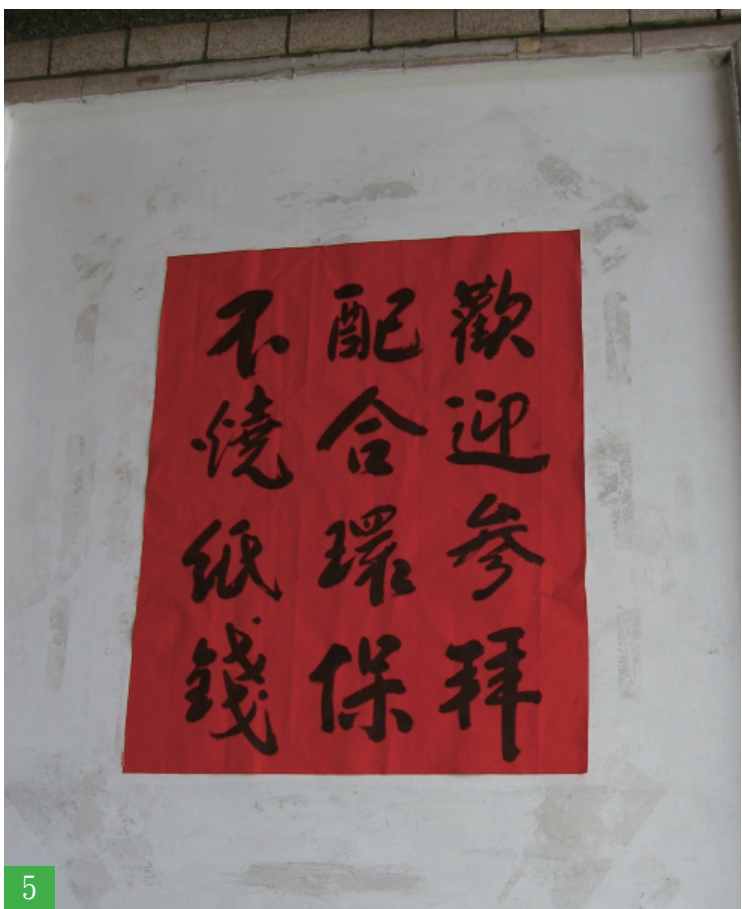 歡迎參拜
配合環保
不燒紙錢
5